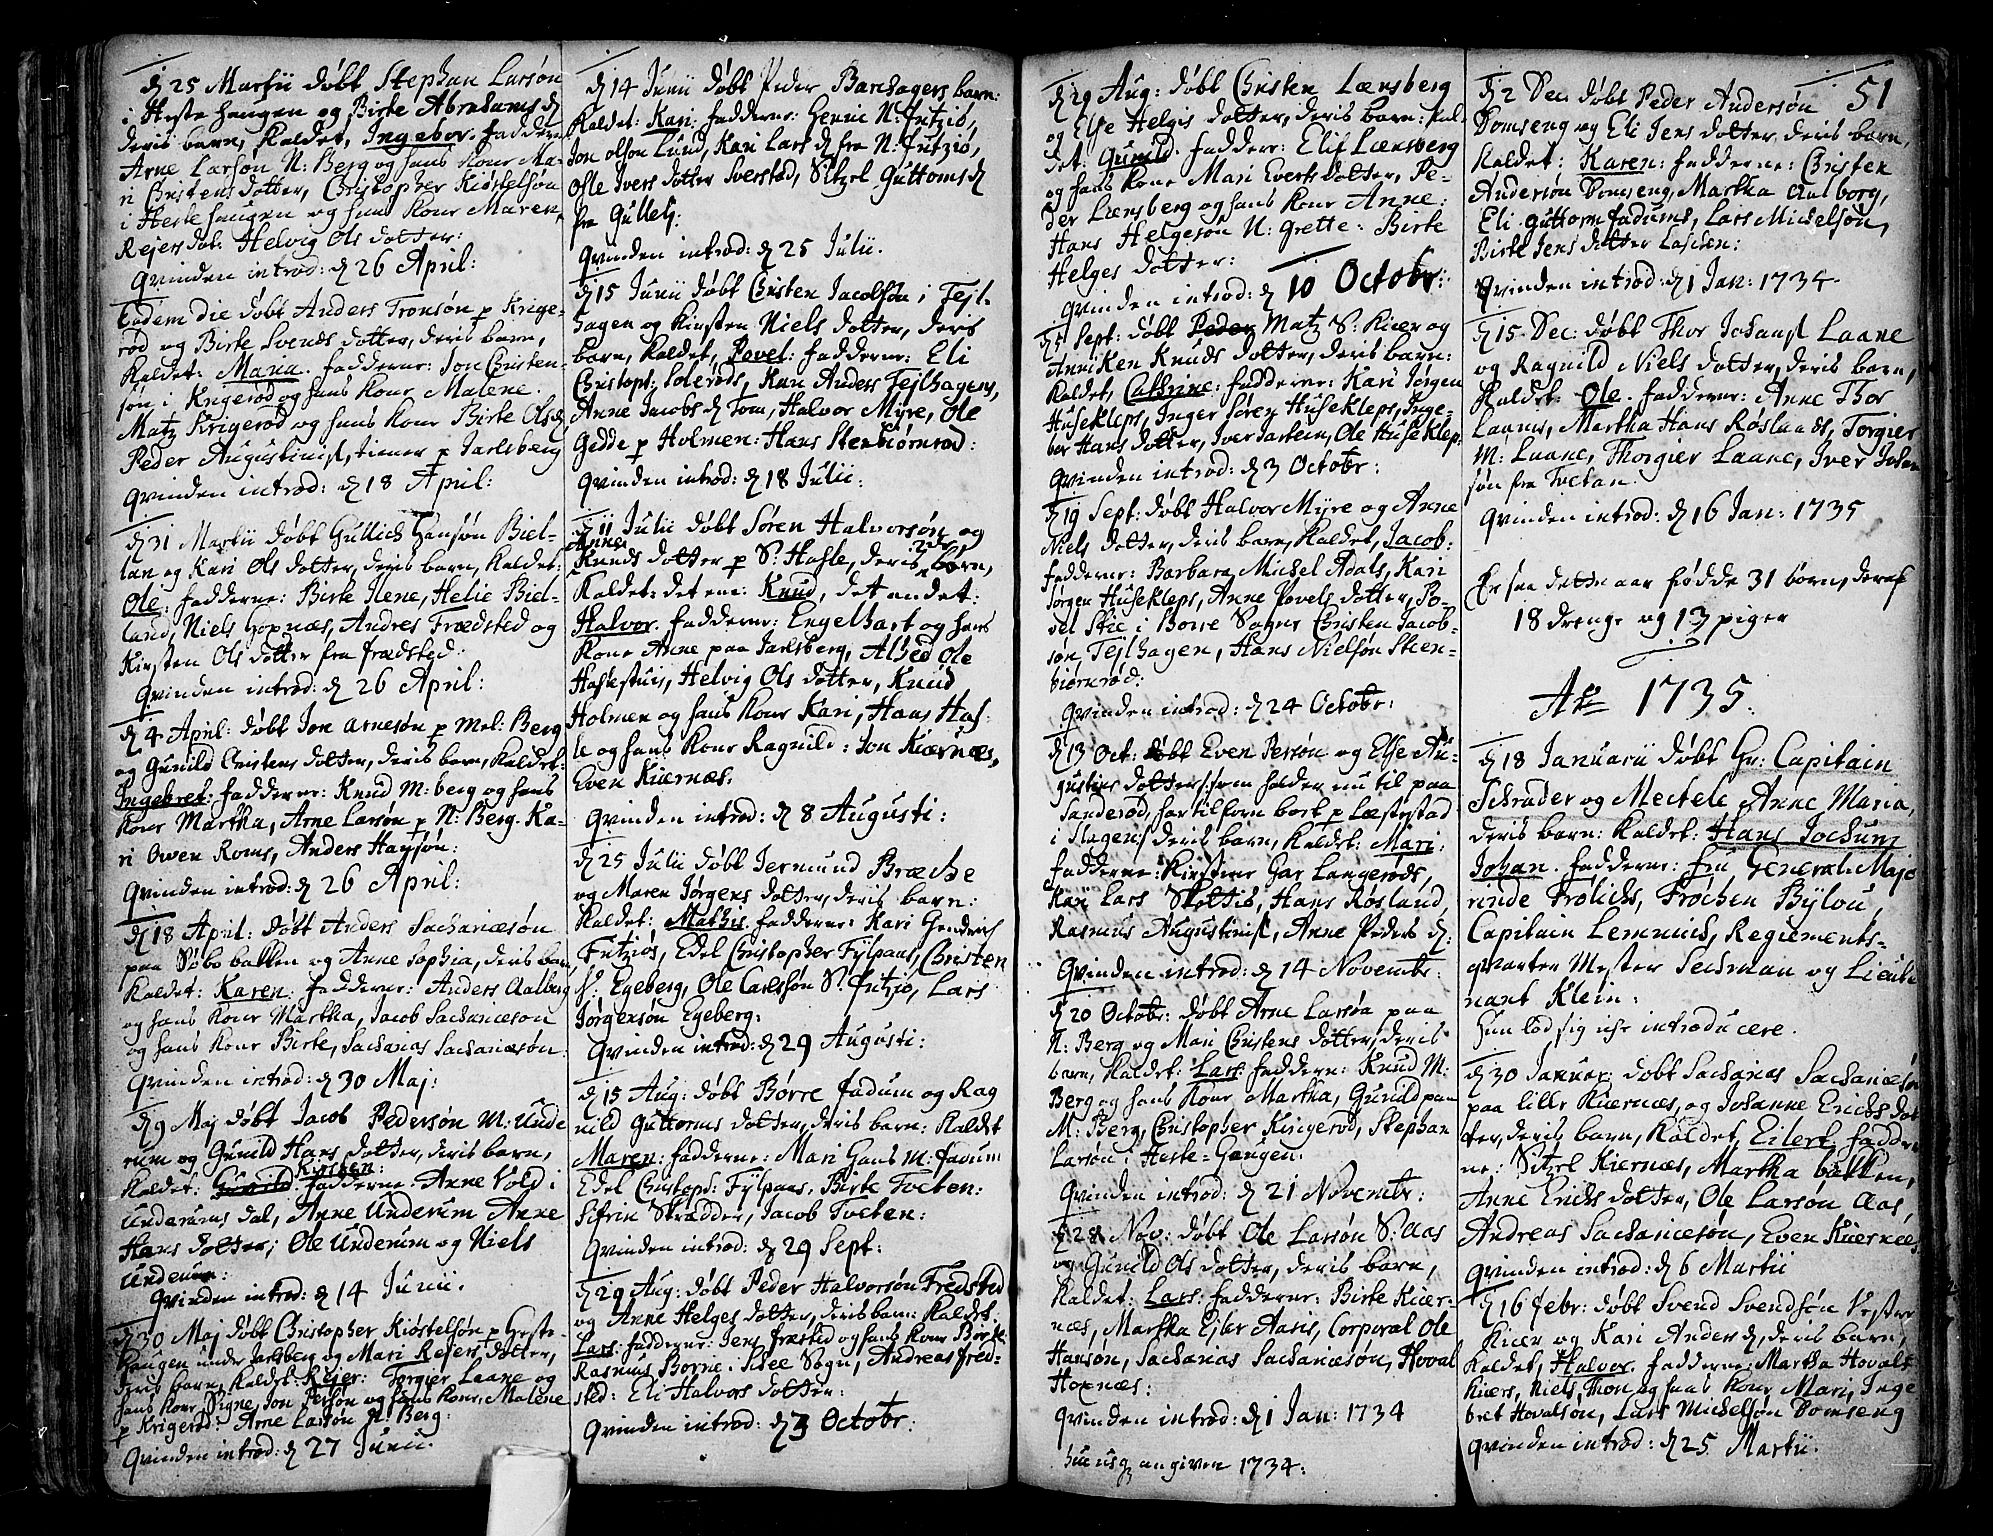 d 25 Martii døbt Stephan Larsøn
i Hestehaugen og Birte Abrahams d
deris barn, Kaldet, Ingebor. fadderne
Arne Larsøn N: Berg og hans Kone Ma-
ri Christens dotter, Christopher Kiøstelsøn
i Hestehaugen og hans Kone Maren
Rejers dat. Helvig Ols dotter:
Qvinden introd: d 26 April:
Eadem die døbt Anders Tronsøn p Krige-
rod og Birte Svends dotter, deris barn,
Kaldet: Maria. fadderne: Jon Christen-
søn i Krigerød og hans Kone Malene.
Matz Krigerød og hans Kone Birte Olsd,
Peder Augustinis, tiener p Jarlsberg
Qvinden introd: d 18 April:
d 31 Martii døbt Gullich Hansøn Biel-
lan og Kari Ols dotter, deris barn, Kaldet:
Ole: fadderne: Birte Ilene, Helie Biel-
land, Niels Hoxnæs, Andres Frædsted og
Kirsten Ols dotter fra frædsted:
Qvinden introd: d 26 April:
d 4 April: døbt Jon Arnesøn p Mel: Berg
og Gunild Christens dotter, deris barn, Kaldet:
Ingebret: fadderne: Knud M: berg og hans
Kone Martha, Arne Larsøn p N: Berg. Ka-
ri Owen Roms, Anders Hansøn:
Qvinden introd: d 26 April:
d 18 April: døbt Anders Sachariæsøn
paa Søbø bakken og Anne Sophia, deris barn,
Kaldet: Karen: fadderne: Anders Aalborg
og hans Kone Martha, Jacob Sachariæsøn
og hans Kone Birte, Sacharias Sachariæsøn:
Qvinden introd: d 30 Maj:
d 9 Maj døbt Jacob Pedersøn M: Unde
rum og Gunild Hans dotter, deris barn,
Kirsten:
Kaldet: Gunild. fadderne Anne Vold i
Underums dal, Anne Underum Anne
Hans dotter, Ole Underum og Niels
Underum:
Qvinden introd: d 14 Junii.
d 30 Maj døbt Christopher Kiøstelsøn p Heste-
haugen under Jarlsberg og Mari Rejers dotter,
deris barn, Kaldet: Rejer: Torgier Laane og
hans Kone Signe, Jon Persøn og hans Kone, Malene
p Krigerød: Arne Larsøn N: Berg:
Qvinden introd: d 27 Junii.
d 14 Junii døbt Peder Barchagers barn:
Kaldet: Kari: fadderne: Henric N: Futziø,
Jon Olson Lund, Kari Lars d fra N: Futziø,
Osle Ivers dotter Sverstad, Sitzel Guttoms d
fra Gulleli:
Qvinden introd: d 25 Julii.
d 15 Junii døbt Christen Jacobsøn i Tejl-
hagen og Kirsten Niels dotter, deris
barn, Kaldet, Povel: fadderne: Eli
Christops: Solerøds, Kari Anders Tejlhagens,
Anne Jacobs d Tom, Halvor Myre, Ole
Gedde p Holmen: Hans Stenbiørnrød:
Qvinden introd: d 18 Julii:
d 11 Julii døbt Søren Halvorsøn og
Anne
Knuds dotter p S: Hasle, deris 2de børn,
Kaldet: det ene: Knud, det andet:
Halvor. fadderne: Engelhart og hans
Kone Anne paa Jarlsberg, Alhed Ole
Haslestuis, Helvig Ols dotter, Knud
Holmen og hans Kone Kari, Hans Has-
le og hans Kone Ragnild: Jon Kiærnæs,
Even Kiærnæs.
Qvinden introd: d 8 Augusti:
d 25 Julii døbt Jermund Bræche
og Maren Jørgens dotter, deris barn:
Kaldet: Mathis. fadderne: Kari Henderichs
Futziøs, Edel Christopher Fylpaas, Christen
S: Egeberg, Ole Carlssøn S: Futziø, Lars
Jørgensøn Egeberg:
Qvinden introd: d 29 Augusti:
d 15 Aug: døbt Børre fadum og Rag
nild Guttorms dotter, deris barn: Kaldet
Maren: fadderne: Mari Hans M: fadum
Edel Christoph: Fylpaas, Birte Tveten:
Sifrin Skrædder, Jacob Tveten:
Qvinden introd: d 29 Sept:
d 29 Aug: døbt Peder Halvorsøn Fredsted
og Anne Helges dotter, deris barn: Kaldet,
Lars: fadderne: Jens fræsted og hans Kone Borte.
Rasmus Borne. Skee Sogn, Andreas fred-
sted: Eli Halvors dotter:
Qvinden introd: d 3 Octobr:
d 29 Aug: døbt Christen Lænsberg
og Else Helgis dotter, deris barn: Kal-
det: Gunild. fadderne: Elif Lænsberg
og hans Kone Mari Everts dotter, Pe-
der Lænsberg og hans Kone Anne:
Hans Helgesøn N: grette: Birte
Helges dotter:
Qvinden introd: d 10 Octobr:
d 5 Sept: døbt Peder Matz S: Kiær og
Anniken Knuds dotter, deris barn:
Kaldet, Cathrine: fadderne: Kari Jørgen
Husekleps, Inger Søren Husekleps, Inge-
bor Hans dotter, Iver Jartein, Ole Huseklep.
Qvinden introd: d 3 Octobr:
d 19 Sept: døbt Halvor Myre og Anne
Niels dotter, deris barn, Kaldet, Jacob:
fadderne: Barbara Michel Adals, Kari
Jørgen Husekleps, Anne Povels dotter, Po-
vel Skie i Borre Sogn, Christen Jacob-
søn, Tejlhagen, Hans Nielsøn Steen-
biørnrød:
Qvinden introd: d 24 Octobr:
d 13 Oct: døbt Even Persøn og Else Au-
gustins dotter (som holder nu til paa
Sanderød, har tilforn boet p Læstestad
i Slagen) deris barn, Kaldet: Mari:
fadderne: Kirstine Har Langerøds,
Kari Lars Skottis, Hans Røsland,
Rasmus Augustinis, Anne Peders d:
Qvinden introd: d 14 Novembr:
d 20 Octobr: døbt Arne Larsøn paa
N: Berg og Mari Christens dotter, deris
barn, Kaldet: Lars: fadderne: Knud M:
Berg og hans Kone Martha, Gunild paa
M: Berg, Christopher Krigerød, Stephan
Larsøn i Heste-Haugen:
Qvinden introd: d 21 Novembr:
d 28 Nov: døbt Ole Larsøn S: Aas
og Gunild Ols dotter, deris barn,
Kaldet: Lars: fadderne: Birte Kiær-
næs, Martha Ejler Aasis, Corporal Ole
Hansøn, Sacharias Sachariæsøn, Hoval
Hoxnæs:
Qvinden introd: d 1 Jan: 1734
angiven 1734:
51
d 2 Dec: døbt Peder Andersøn
Domseng og Eli Jens dotter, deris barn,
Kaldet: Karen: fadderne: Christen
Andersøn Domseng, Martha Aalborg,
Eli Guttorm fadums, Lars Michelsøn,
Birte Jens dotter Laschen:
Qvinden introd: d 1 Jan: 1734
d 15 Dec: døbt Thor Johansl Laane
og Ragnild Niels dotter, deris barn,
Kaldet: Ole. fadderne: Anne Thor
Laanis, Martha Hans Røslands, Torgier
M: Laane, Thorgier Laane, Iver Johan
søn fra Tvetan.
Qvinden introd: d 16 Jan: 1735
Er saa dette aar fødde 31 børn, deraf
18 drenge og 13 piger
Ao 1735
d 18 Januarii døbt Hr: Capitain
Schrøder og Mectele Anne Maria,
deris barn: Kaldet: Hans Jochum
Johan. fadderne: fru General: Majo
rinde Frølichs, Frøchen Bylou,
Capitain Lemmich, Regiements-
qvarter Mester Sechman og Lieute
nant Klein:
hun lod sig iche introducere.
d 30 Januar: døbt Sacharias Sachariæsøn
paa lille Kiærnæs, og Johanne Erichs dot
ter, deris barn, Kaldet, Eilert. fadder
ne: Sitzel Kiernæs, Martha bakken,
Anne Erichs dotter, Ole Larsøn Aas,
Andreas Sachariæsøn, Even Kiærnæs
Qvinden introd: d 6 Martii
d 16 febr: døbt Svend Svendsøn Vestre
Kiær og Kari Anders d, deris barn,
Kaldet, Halvor. fadderne: Martha Hovals
Kiærs, Niels, Thon og hans Kone, Mari, Inge
bret Hovalsøn, Lars Michelsøn Domseng
Qvinden introd: d 25 Martii.